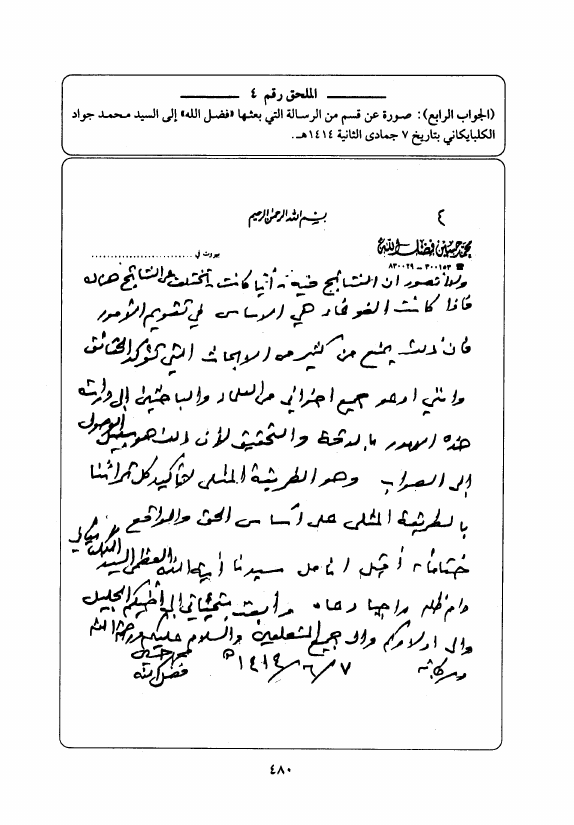 الملحق رقم ٤
(الجواب الرابع): صورة عن قسم من الرسالة التي بعثها «فضل الله» إلى السيد محمد جواد
الكلبايكاني بتاريخ ٧ جمادى الثانية ١٤١٤هـ.
بسم الله الرحمن الرحيم ٤
محمد حسين فضل الله
بيروت في
٣٠٠١٥٣ - ٨٣٠٠٢٩
ان النتائج كانت تختلف عن النتائج هناك
فاذا كانت الغوغاء هي الاساس في تقويم الامور
فان ذلك يمنع من كثير من الابحاث التي تؤكد الحقائق
وانني ادعو جميع اخواني من العلماء والباحثين إلى دراسة
هذه الامور بالدقة والتحقيق لأن ذلك هو سبيل الوصول
إلى الصواب وهو الطريقة المثلى لتأكيد كل تراثنا
بالطريقة المثلى على أساس الحق والواقع
ختاماً أقبل انامل سيدنا آية الله العظمى السيد الكلبايكاني
دام ظله راجيا دعاءه وأبعث بتحياتي إلى الجليل
والى اولادكم والى جميع المتعلقين والسلام عليكم ورحمة الله
وبركاته ٧/٦/١٤١٤ هـ محمد حسين
فضل الله
٤٨٠